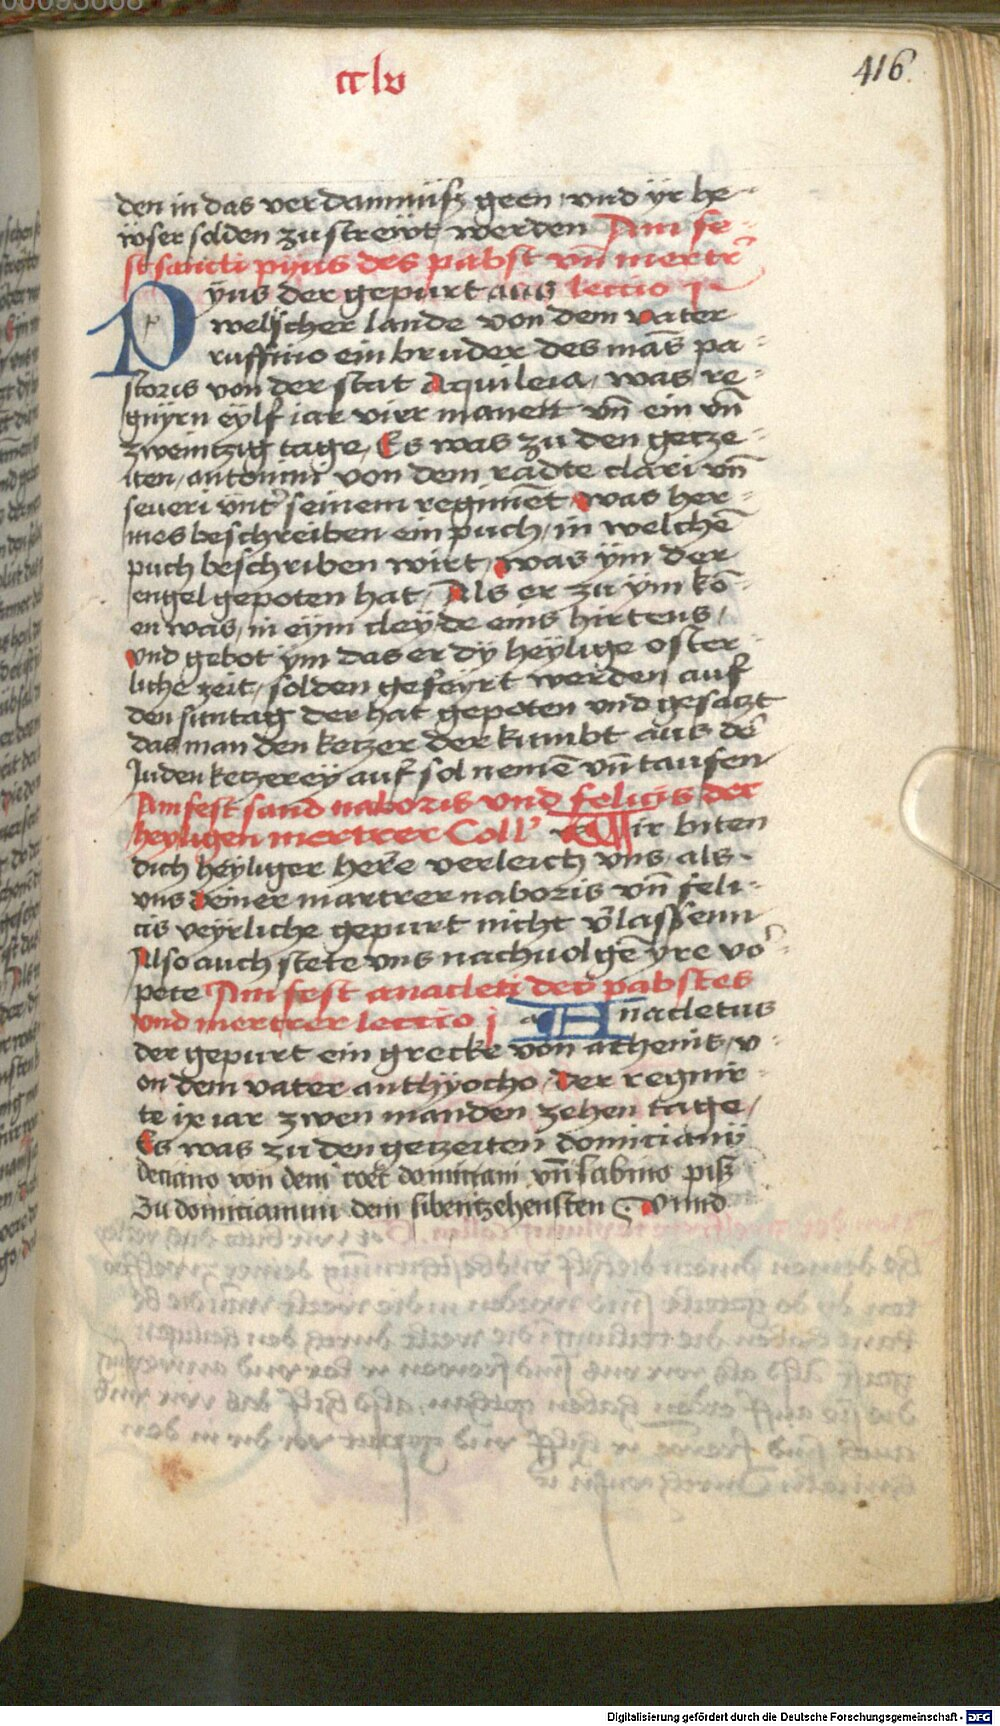 cclv
416
den in das verdamnüsz geen vnd ÿr he-
wser solden zu streẅt werden Am fe-
st sancti pyus des pabst vn̄ mertrˀ
Pÿus der gepurt aus lectio j
welscher lande von dem vater
ruffino ein bruder des mās pa-
storis von der stat Aquileia / was re-
gnÿrn eÿlf iar virr manett vn̄ ein vn̄
zweintzig tage / Es was zu den getze-
iten / antonini von dem radte clari vn̄
seueri vntˀ seinem regimēt was her-
mes beschreiben ein puch / in welchē
puch beschriben wirt / was ÿm der
engel gepoten hat / Als er zu ym kō-
en was / in eÿm cleÿde eins hirtens /
vnd gebot ym das er dÿ heÿlige oster-
liche zeit / solden gefeÿrt werden auf
den suntag der hat gepoten vnd gesaczt
das man den ketzer der kumbt aus dē
Juden ketzereÿ auf sol nemē vn̄ taufen
Am fest sand naboris vnd felicis der
heyligen mertrer Collˀ Wir biten
dich heÿliger here verleich vns / als
vns deiner martrer naboris vn̄ feli-
cis veÿrliche gepurt nicht v̄lassenn
Also auch stete vns nachuolgē yre vō-
pete Am fest anacleti der pabstes
vnd mertrer lectio j Anacletus
der gepurt ein grecke von athenis / v-
on dem vater anthÿocho / der regnir-
te ix iar zwen manden zehen tage /
Es was zu den getzeiten domicianÿ
deciano von dem domitiani vn̄ sabino pisz
zu domicianum dem sibentzehensten Vnnd
Digitalisierung gefördert durch die Deutsche Forschungsgemeinschaft - DFG